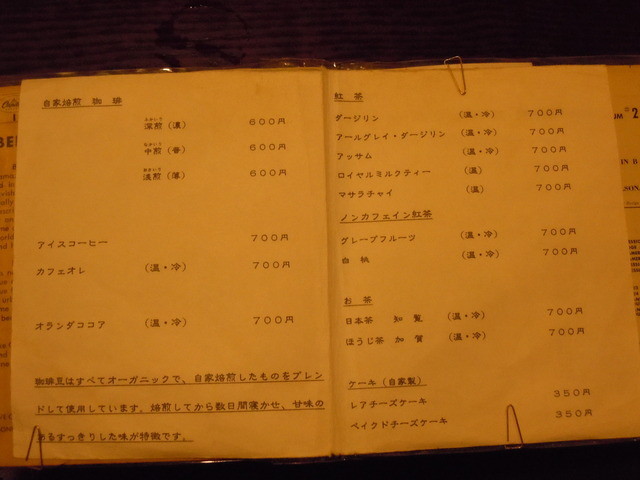 自家焙煎 珈琲
深煎(濃) 600円
中煎(香) 600円
浅煎(薄) 600円
アイスコーヒー 700円
カフェオレ (温・冷) 700円
オランダココア (温・冷) 700円
珈琲豆はすべてオーガニックで、自家焙煎したものをブレン
ドして使用しています。焙煎してから数日間寝かせ、甘味の
あるすっきりした味が特徴です。
紅 茶
ダージリン (温・冷) 700円
アールグレイ・ダージリン (温・冷) 700円
アッサム (温・冷) 700円
ロイヤルミルクティー (温) 700円
マサラチャイ (温) 700円
ノンカフェイン紅茶
グレープフルーツ (温・冷) 700円
白 桃 (温・冷) 700円
お 茶
日本茶 知 覧 (温・冷) 700円
ほうじ茶 加 賀 (温・冷) 700円
ケーキ(自家製)
レアチーズケーキ 350円
ベイクドチーズケーキ 350円